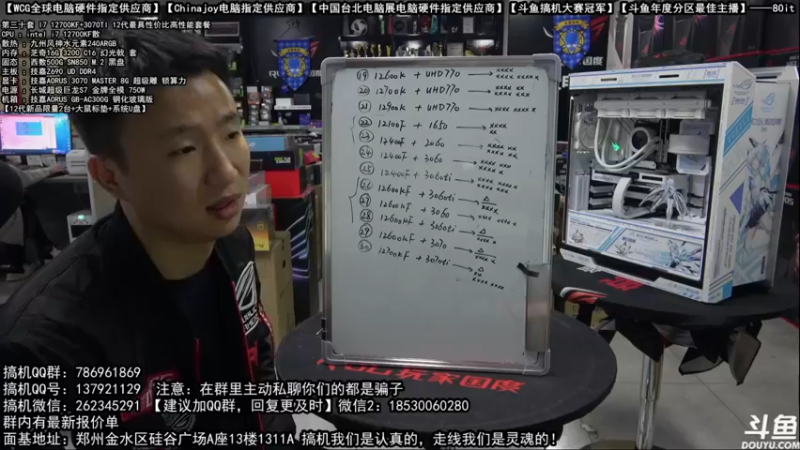 【WCG全球电脑硬件指定供应商】【Chinajoy电脑指定供应商】【中国台北电脑展电脑硬件指定供应商】【斗鱼搞机大赛冠军】【斗鱼年度分区最佳主播】——80it
第三十套 I7 12700KF+3070TI 12代最具性价比高性能套餐
CPU：intel i7 12700KF散
散热：九州风神水元素240ARGB
内存：芝奇16G 3200 C16 幻光戟 套
固态：西数500G SN850 M.2 黑盘
主板：技嘉Z690 UD DDR4
显卡：技嘉AORUS 3070 MASTER 8G 超级雕 锁算力
电源：长城超级巨龙S7 金牌全模 750W
机箱：技嘉AORUS GB-AC300G 钢化玻璃版
【12代新品限量7台+大鼠标垫+系统U盘】
⑲ 12600K + UHD770
⑳ 12700K + UHD770
㉑ 12900K + UHD770
㉒ 12100F + 1650
㉓ 12400F + 2060
㉔ 12400F + 3060
㉕ 12400F + 3060ti
㉖ 12600KF + 3060ti
㉗ 12600KF + 3060
㉘ 12600KF + 3060ti
㉙ 12600KF + 3070
㉚ 12700KF + 3070ti
玩家国度
搞机QQ群：786961869
搞机QQ号：137921129 注意：在群里主动私聊你们的都是骗子
搞机微信：262345291 【建议加QQ群，回复更及时】微信2：18530060280
群内有最新报价单
面基地址：郑州金水区硅谷广场A座13楼1311A 搞机我们是认真的，走线我们是灵魂的！
斗鱼
DOUYU.COM